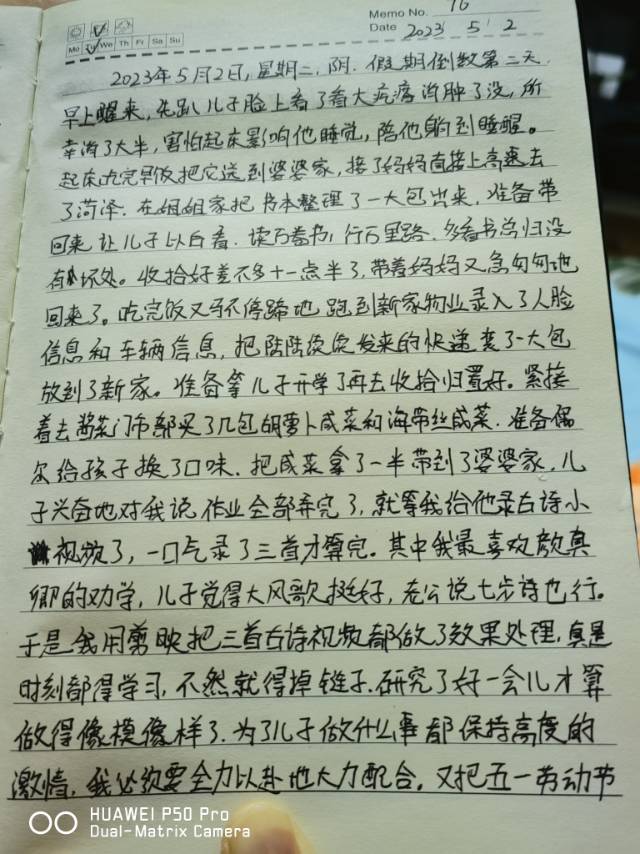 Memo No. 16
Mo Tu We Th Fr Sa Su
Date 2023 5 / 2
2023年5月2日,星期二,阴.假期倒数第二天.
早上醒来,先趴儿子脸上看了看大疙瘩消肿了没,所
幸消了大半,害怕起床影响他睡觉,陪他躺到睡醒。
起床吃完早饭把它送到婆婆家,接了妈妈直接上高速去
了菏泽.在姐姐家把书本整理了一大包出来,准备带
回来让儿子以后看.读万卷书,行万里路.多看书总归没
有坏处。收拾好差不多十一点半了,带着妈妈又急匆匆地
回来了。吃完饭又马不停蹄地跑到新家物业录入了人脸
信息和车辆信息,把陆陆续续发来的快递装了一大包
放到了新家。准备等儿子开学了再去收拾归置好。紧接
着去酱菜门市部买了几包胡萝卜咸菜和海带丝咸菜.准备偶
尔给孩子换了口味.把咸菜拿了一半带到了婆婆家,儿
子兴奋地对我说作业全部弄完了,就等我给他录古诗小
视频了,一口气录了三首才算完。其中我最喜欢颜真
卿的劝学,儿子觉得大风歌挺好,老公说七步诗也行。
于是我用剪映把三首古诗视频都做了效果处理,真是
时刻都得学习,不然就得掉链子.研究了好一会儿才算
做得像模像样了.为了儿子做什么事都保持高度的
激情,我必须要全力以赴地大力配合。又把五一劳动节
HUAWEI P50 Pro
Dual-Matrix Camera